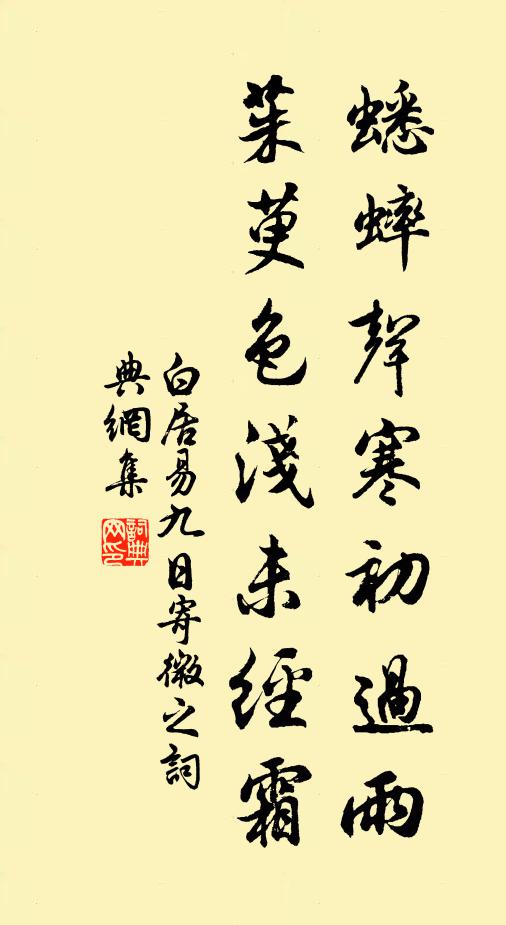 蟋蟀聲寒初過雨
茱萸色淺未經霜
白居易九日寄微之詞
典網集
詞典網印